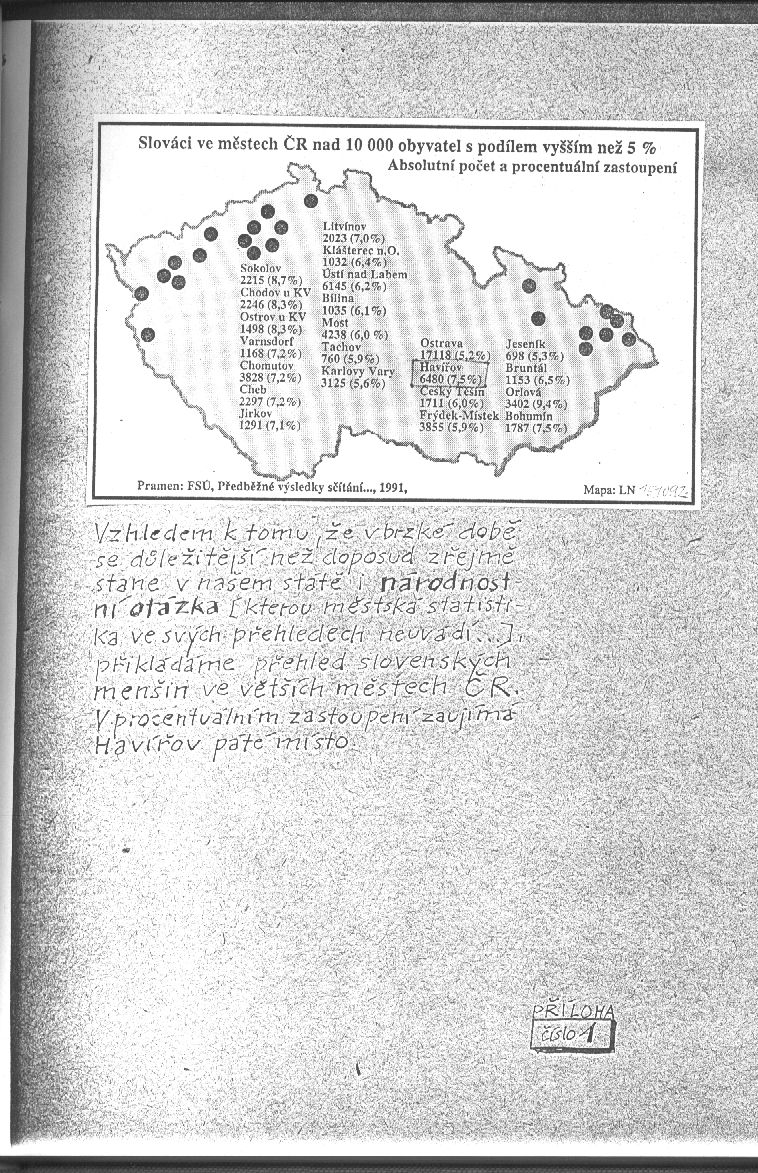 Slováci ve městech ČR nad 10 000 obyvatel s podílem vyšším než 5 %
Absolutní počet a procentuální zastoupení
Sokolov
2215 (8,7%)
Chodov u KV
2246 (8,3%)
Ostrov u KV
1498 (8,3%)
Varnsdorf
1168 (7,2%)
Chomutov
3828 (7,2%)
Cheb
2297 (7,2%)
Jirkov
1291 (7,1%)
Litvínov
2023 (7,0%)
Klášterec n.O.
1032 (6,4%)
Ústí nad Labem
6145 (6,2%)
Bílina
1035 (6,1%)
Most
4238 (6,0 %)
Tachov
760 (5,9%)
Karlovy Vary
3125 (5,6%)
Ostrava
17118 (5,2%)
Havířov
6480 (7,5%)
Český Těšín
1711 (6,0%)
Frýdek-Místek
3855 (5,9%)
Jeseník
698 (5,3%)
Bruntál
1153 (6,5%)
Orlová
3402 (9,4%)
Bohumín
1787 (7,5%)
Pramen: FSÚ, Předběžné výsledky sčítání..., 1991,
Mapa: LN
Vzhledem k tomu, že v brzké době
se důležitější než doposud zřejmě
stane v našem státě i národnost-
ní otázka [kterou městská statisti-
ka ve svých přehledech neuvádí...],
přikládáme přehled slovenských
menšin ve větších městech ČR.
V procentuálním zastoupení zaujímá
Havířov páté místo.
PŘÍLOHA
číslo 1